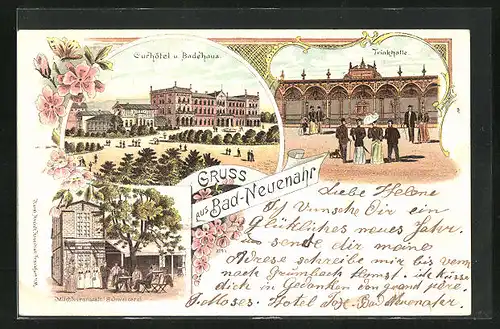 Curhôtel u. Badehaus.
Trinkhalle.
GRUSS
aus Bad-Neuenahr
Milchkuranstalt Schweizerei
Liebe Helene
Ich wünsche Dir ein
glückliches neues Jahr.
sende dir meine
Adresse schreibe mir bis wenn
nach Grumbach kommst. ich küsse
dich in Gedanken
J. Moses. Hotel Bad Neuenahr.